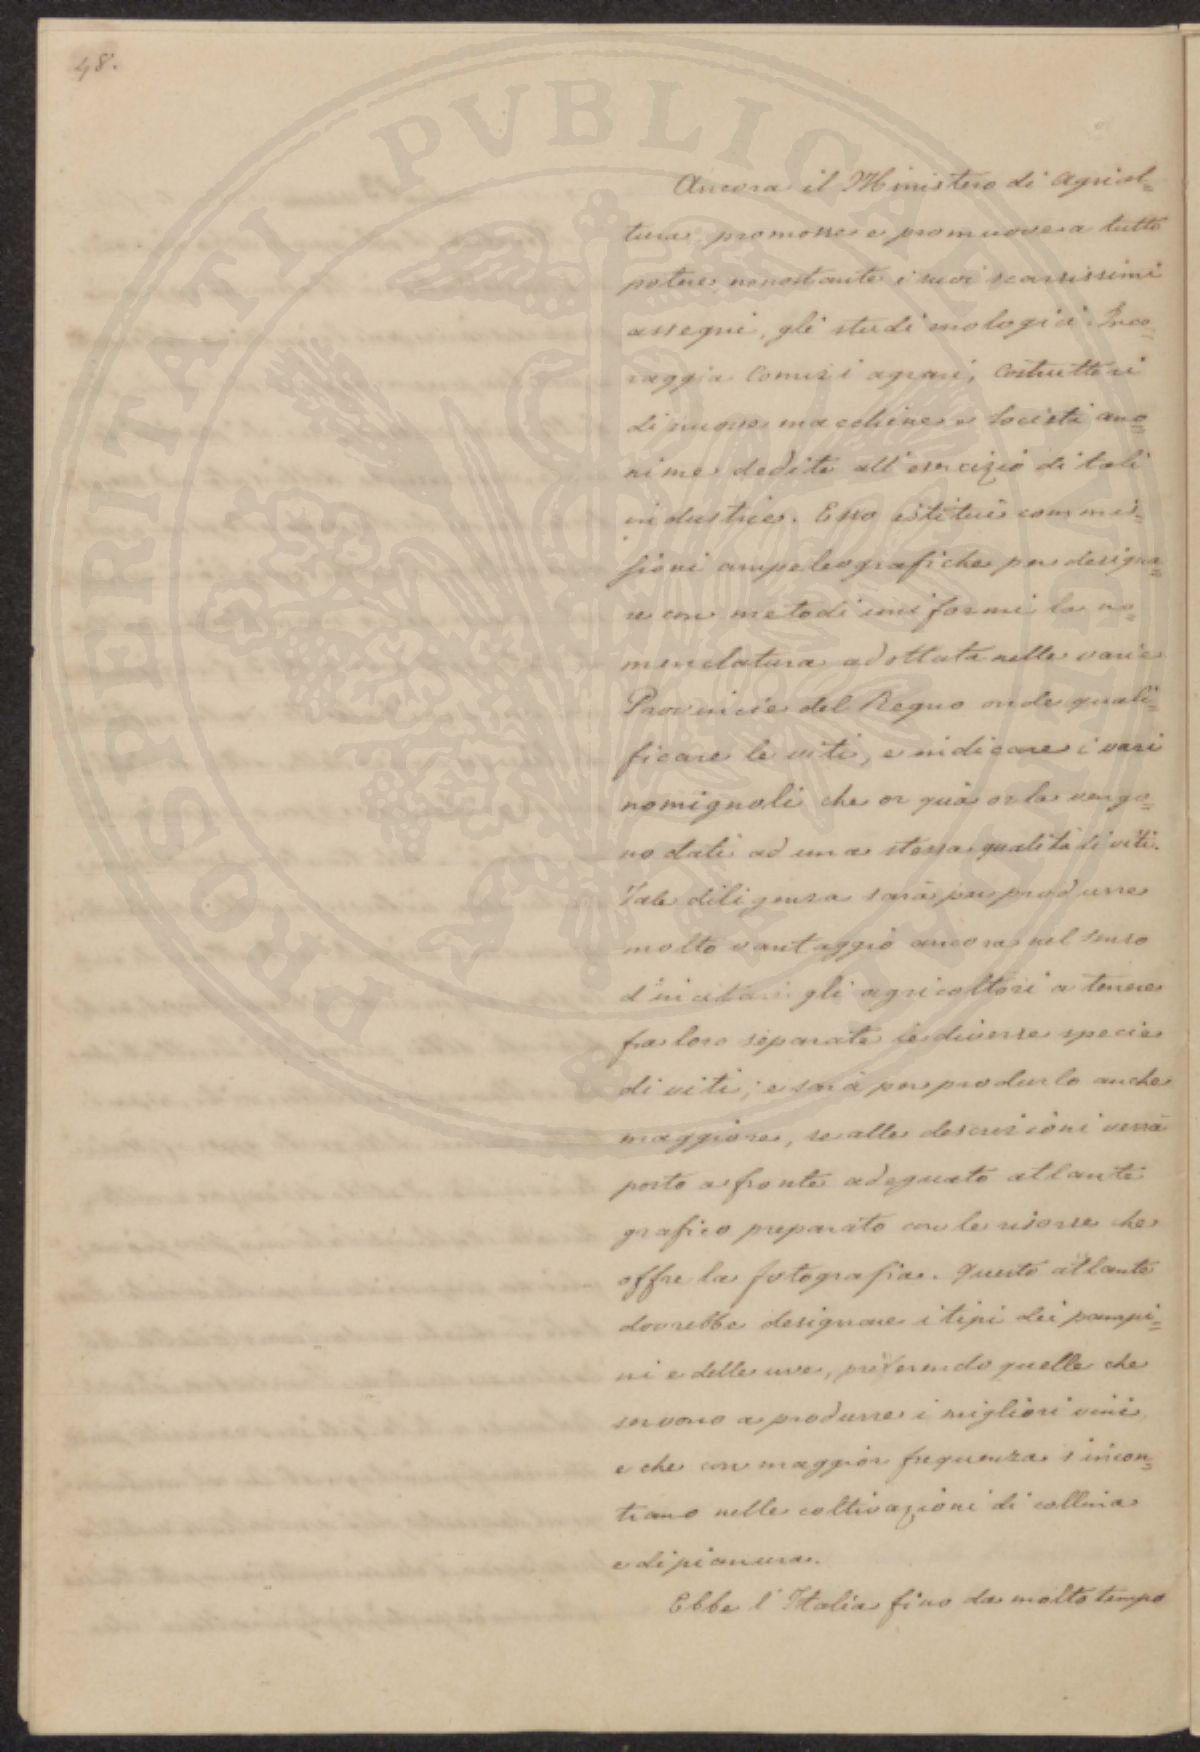 48.
Ancora il Ministero di Agricol=
tura promosse e promuove a tutto
potere nonostante i suoi scarsissimi
assegni, gli studi enologici. Inco=
raggia Comizi agrari, Costruttori
di nuove macchine e Società ano=
nime dedite all'esercizio di tali
industrie. Esso istituì commis=
sioni ampelografiche per designa=
re con metodi uniformi la no=
menclatura adottata nelle varie
Provincie del Regno onde quali=
ficare le viti, e indicare i vari
nomignoli che or quà or la vengo=
no dati ad una stessa qualità di viti.
Tale diligenza sarà per produrre
molto vantaggio ancora nel senso
d'incitare gli agricoltori a tenere
fra loro separate le diverse specie
di viti; e sarà per produrlo anche
maggiore, se alle descrizioni verrà
posto a fronte adeguato atlante
grafico preparato con le risorse che
offre la fotografia. Questo atlante
dovrebbe designare i tipi dei pampi=
ni e delle uve, preferendo quelle che
servono a produrre i migliori vini
e che con maggior frequenza s'incon=
trano nelle coltivazioni di collina
e di pianura.
Ebbe l'Italia fino da molto tempo
PROSPERITATI PVBLICAE AVGENDAE